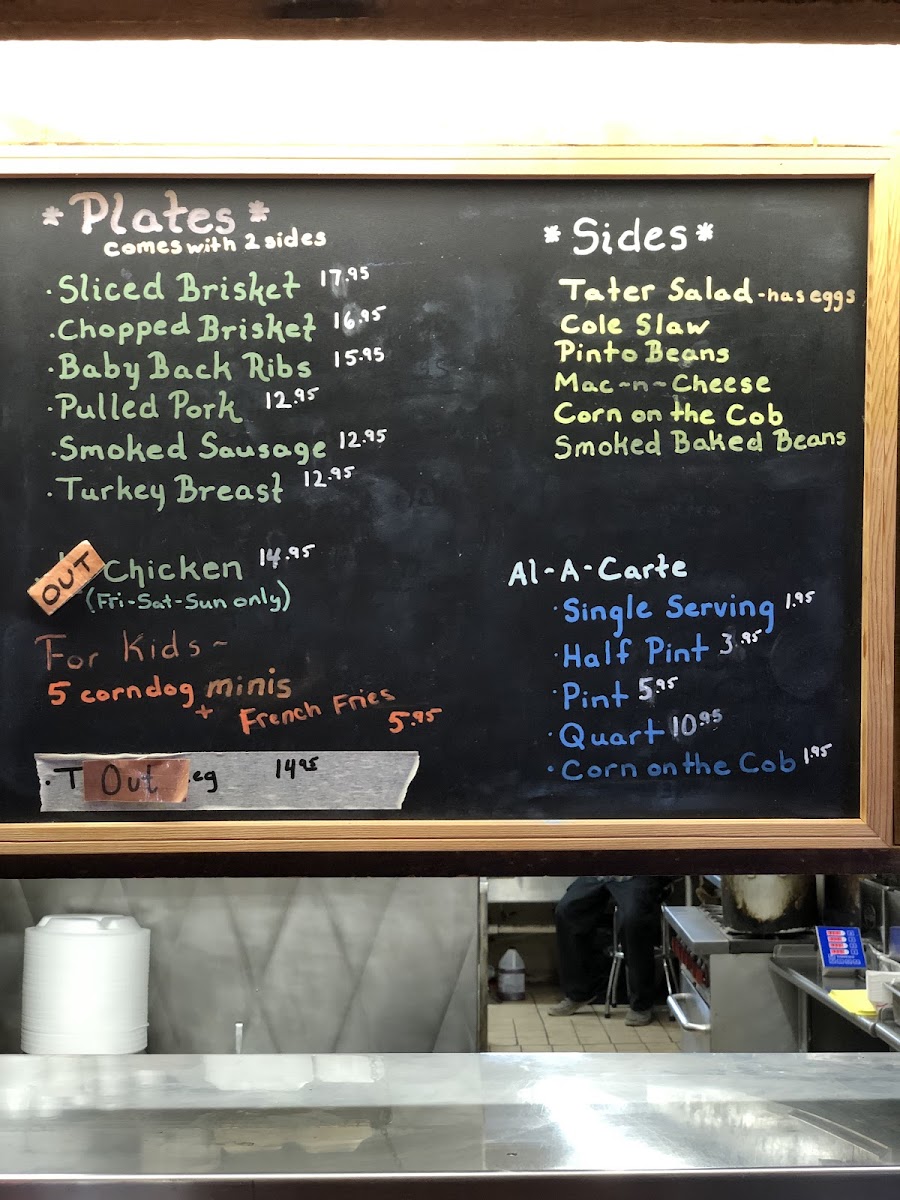 *Plates*
comes with 2 sides
·Sliced Brisket 17.95
·Chopped Brisket 16.95
·Baby Back Ribs 15.95
·Pulled Pork 12.95
·Smoked Sausage 12.95
·Turkey Breast 12.95
OUT Chicken 14.95
(Fri-Sat-Sun only)
For Kids~
5 corndog minis
+ French Fries
5.95
·T Out eg 14.95
*Sides*
Tater Salad-has eggs
Cole Slaw
Pinto Beans
Mac-n-Cheese
Corn on the Cob
Smoked Baked Beans
Al-A-Carte
·Single Serving 1.95
·Half Pint 3.95
·Pint 5.95
·Quart 10.95
·Corn on the Cob 1.95